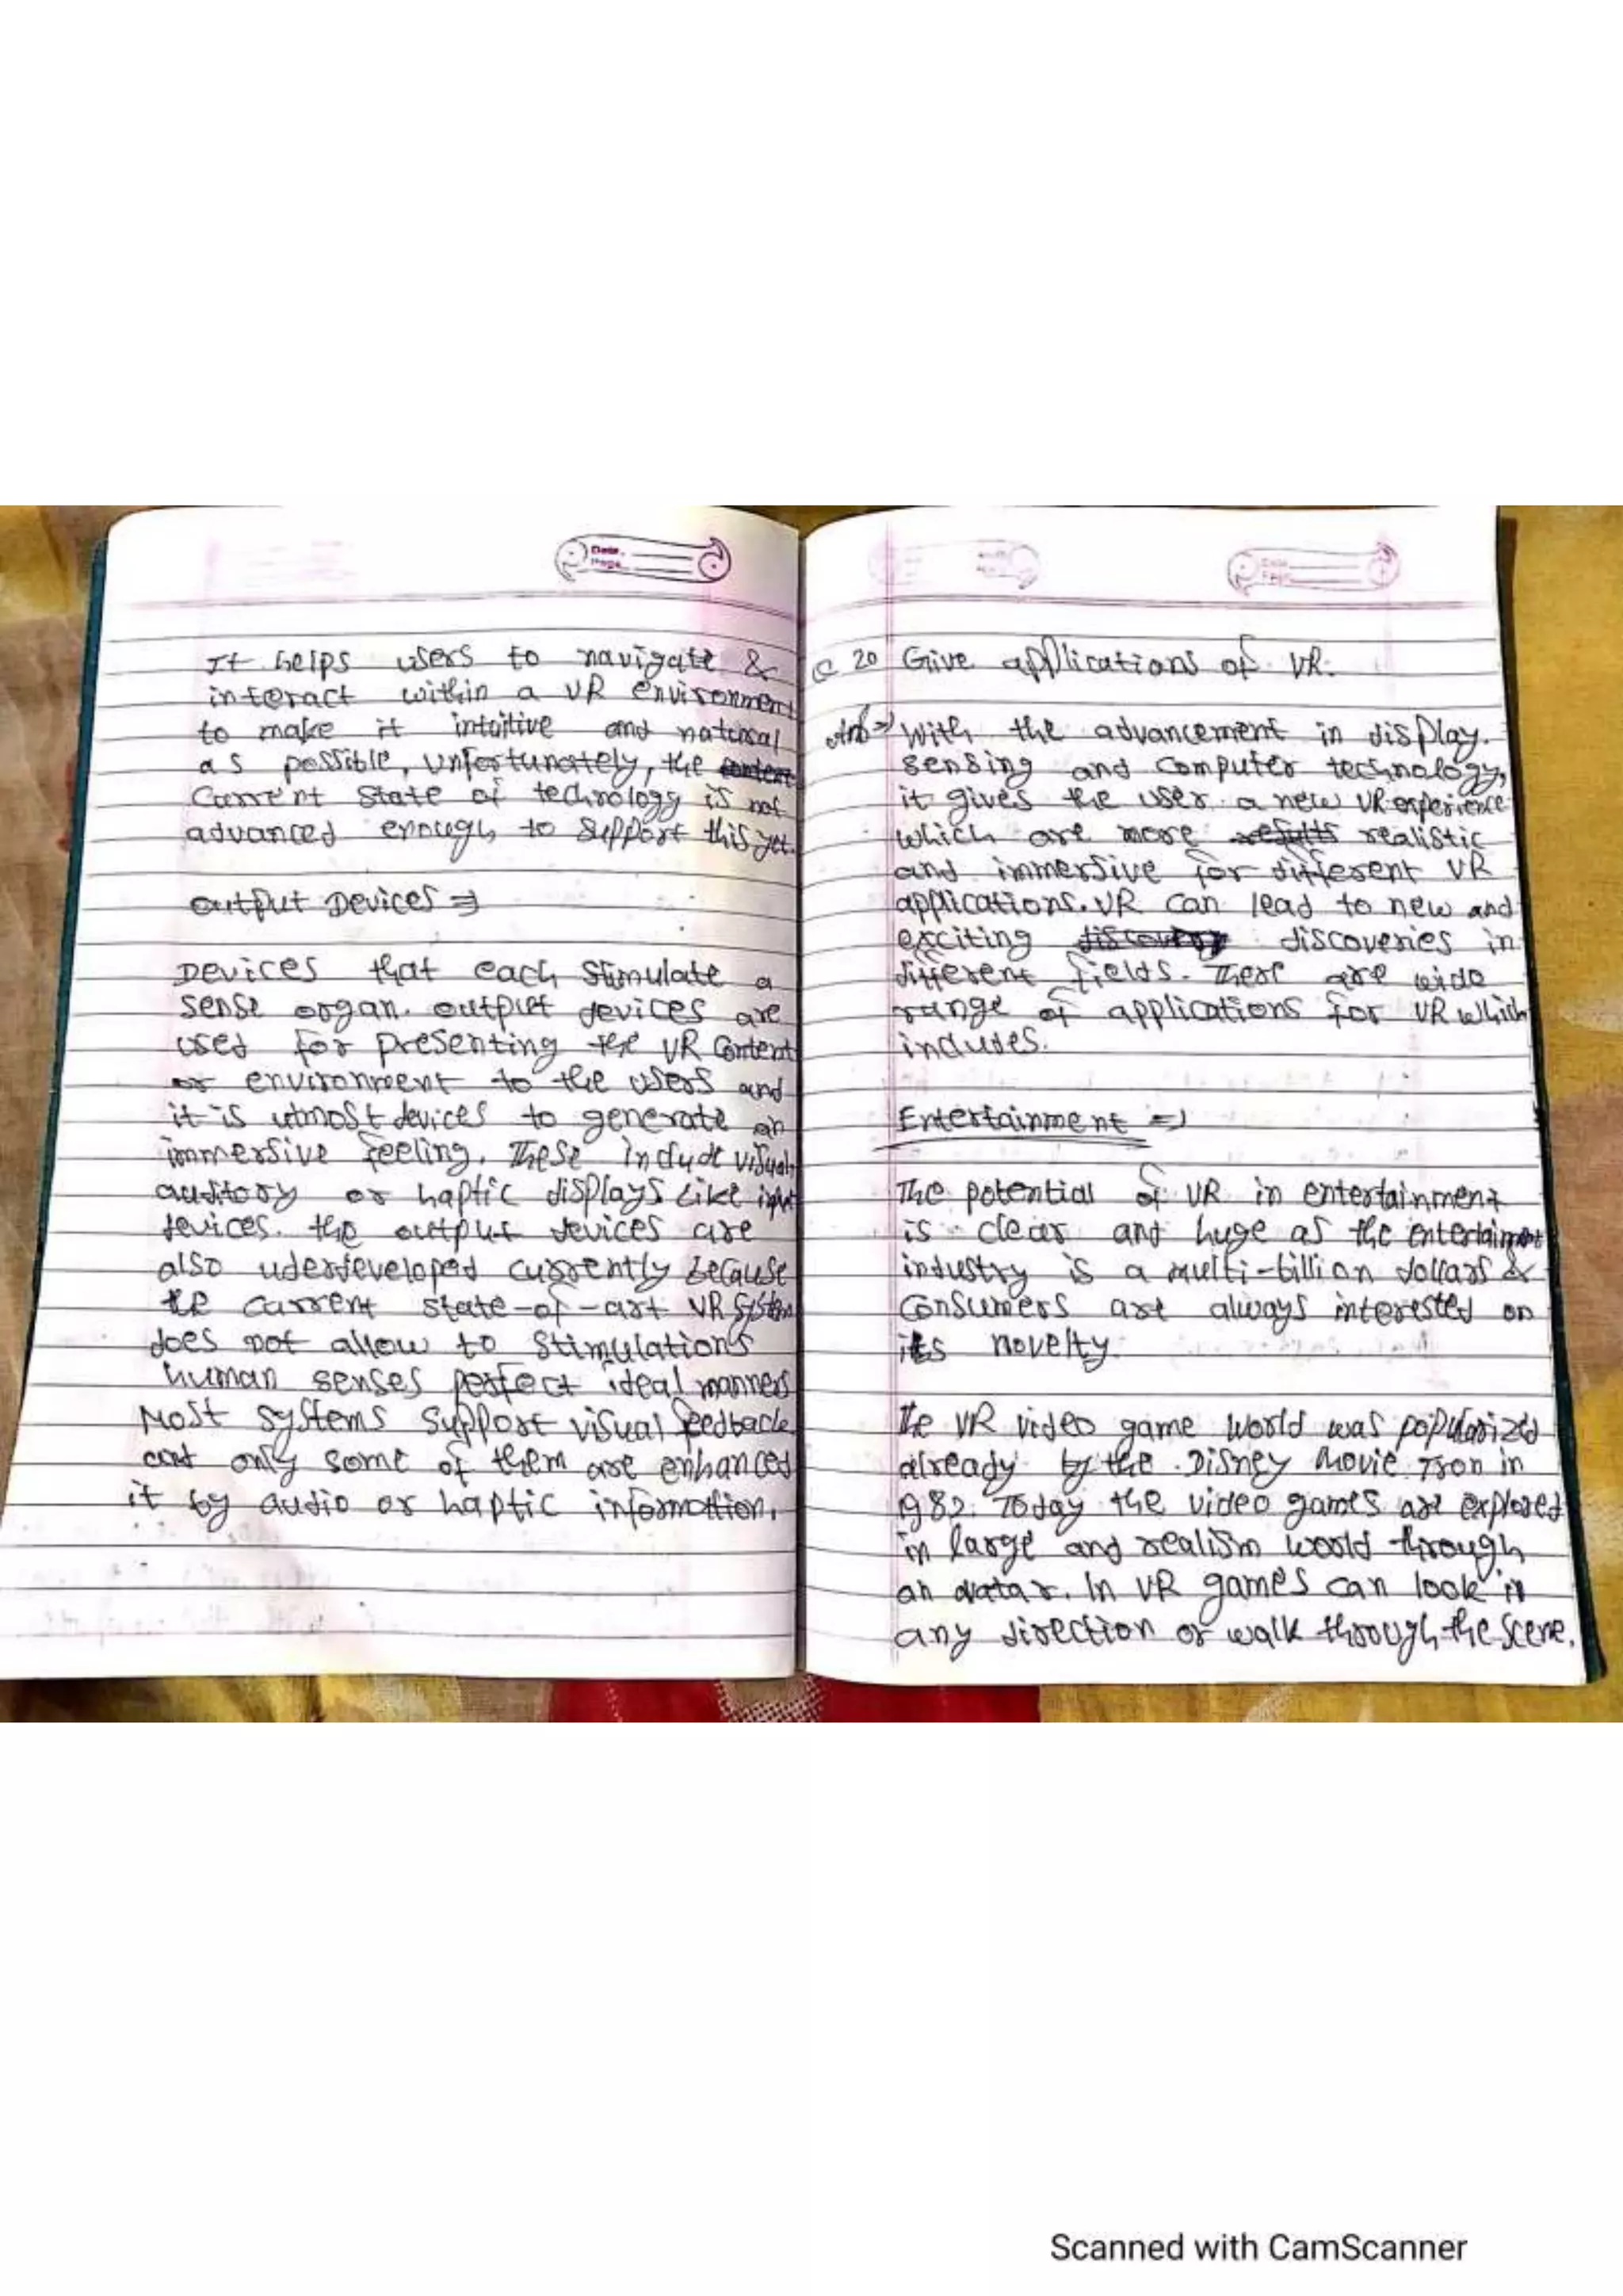 Date.
Page.
It helps users to navigate &
interact within a VR environment
to make it intuitive and natural
as possible, unfortunately, the content
Current state of technology is not
advanced enough to support this yet.
output Devices ⇒
Devices that each stimulate a
sense organ. output devices are
used for presenting the VR content
or environment to the users and
it is utmost devices to generate an
immersive feeling. These include visual,
auditory or haptic displays like input
devices. the output devices are
also uderdeveloped currently because
the current state-of-art VR system
does not allow to stimulations
human senses perfect ideal manners
Most systems support visual feedback
and only some of them are enhanced
it by audio or haptic information.
Date
Page
Q 20 Give applications of VR.
Ans⇒ With the advancement in display.
sensing and computer technology,
it gives the user a new VR experience
which are more results realistic
and immersive for different VR
applications. VR can lead to new and
exciting discovery discoveries in
different fields. There are wide
range of applications for VR which
includes.
Entertainment ⇒
The potential of VR in entertainment
is clear and huge as the entertainment
industry is a multi-billion dollars &
consumers are always interested on
its novelty.
The VR video game world was popularized
already by the Disney Movie Tron in
1982. Today the video games are explored
in large and realism world through
an avatar. In VR games can look in
any direction or walk through the scene.
Scanned with CamScanner